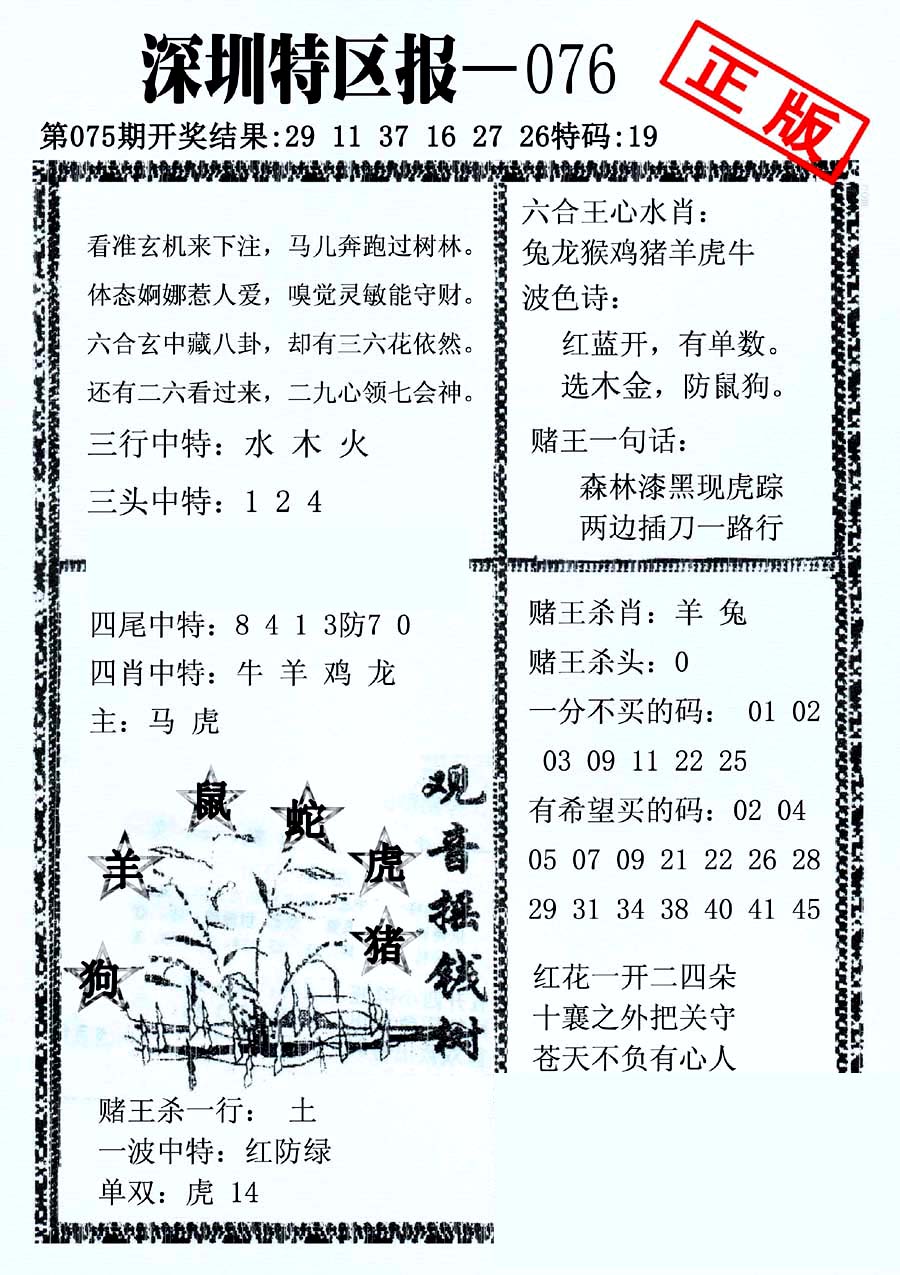 深圳特区报—076
正版
第075期开奖结果:29 11 37 16 27 26特码:19
看准玄机来下注，马儿奔跑过树林。
体态婀娜惹人爱，嗅觉灵敏能守财。
六合玄中藏八卦，却有三六花依然。
还有二六看过来，二九心领七会神。
三行中特：水 木 火
三头中特：1 2 4
六合王心水肖：
兔龙猴鸡猪羊虎牛
波色诗：
红蓝开，有单数。
选木金，防鼠狗。
赌王一句话：
森林漆黑现虎踪
两边插刀一路行
四尾中特：8 4 1 3防7 0
四肖中特：牛 羊 鸡 龙
主：马 虎
鼠
蛇
羊
虎
猪
狗
观音摇钱树
赌王杀一行： 土
一波中特：红防绿
单双：虎 14
赌王杀肖：羊 兔
赌王杀头：0
一分不买的码： 01 02
03 09 11 22 25
有希望买的码：02 04
05 07 09 21 22 26 28
29 31 34 38 40 41 45
红花一开二四朵
十襄之外把关守
苍天不负有心人